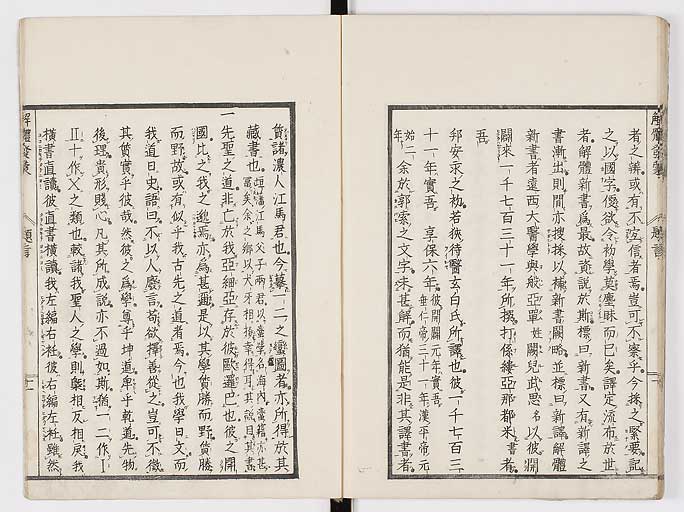 者之辨或有不啻信者焉豈可不察乎今採之緊要記
之以國字傍欲令初學莫塵眯而已矣譯定流布於世
者解體新書爲最故資說於斯標曰新書又有新譯之
書漸出則間亦搜採以補新書闕略並標曰新譯解體
新書者遠西大醫學與般亞單姓闕兒武思名以彼開
闢來一千七百三十一年所撰打係縷亞那都米書者
吾
邦安永之初若狹侍醫玄白氏所譯也彼一千七百三
十一年實吾享保六年彼開闢元年實吾垂仁帝三十一年漢平帝元
始二年余於郭索之文字未甚解而猶能是非其譯書者
貸諸濃人江馬君也今摹一二之蠻圖者亦所得於其
藏書也
一先聖之道非亡於我亞細亞存於彼歐邏巴也彼之開
國比之我之邈焉亦爲甚邇是以其學質勝而野質勝
而野故或有似乎我古先之道者焉今也我學日文而
我道日史語曰不以人廢言苟欲擇善從之豈可不徵
其質實乎彼哉然彼之爲學尊乎坤道卑乎乾道先物
後理貴形賤心凡其所成說亦不過如斯猶一二作Ⅰ
Ⅱ十作Ⅹ之類也較諸我聖人之學則槩相反相戾我
橫書直讀彼直書橫讀我左編右社彼右編左社雖然
解體發蒙
題言